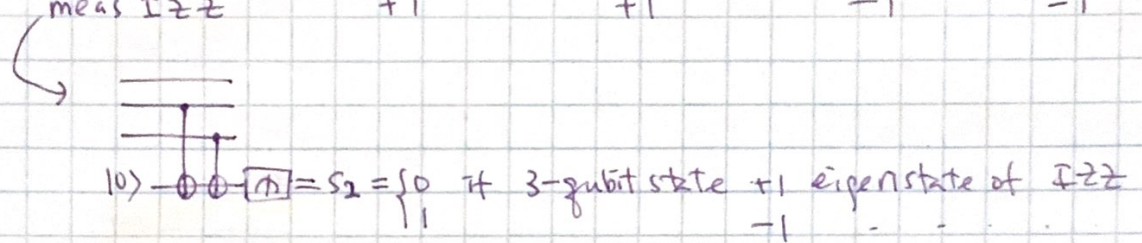 meas IZZ +1 +1 -1 -1
|0> = S2 = { 0 if 3-qubit state +1 eigenstate of IZZ
1 -1 - - . .